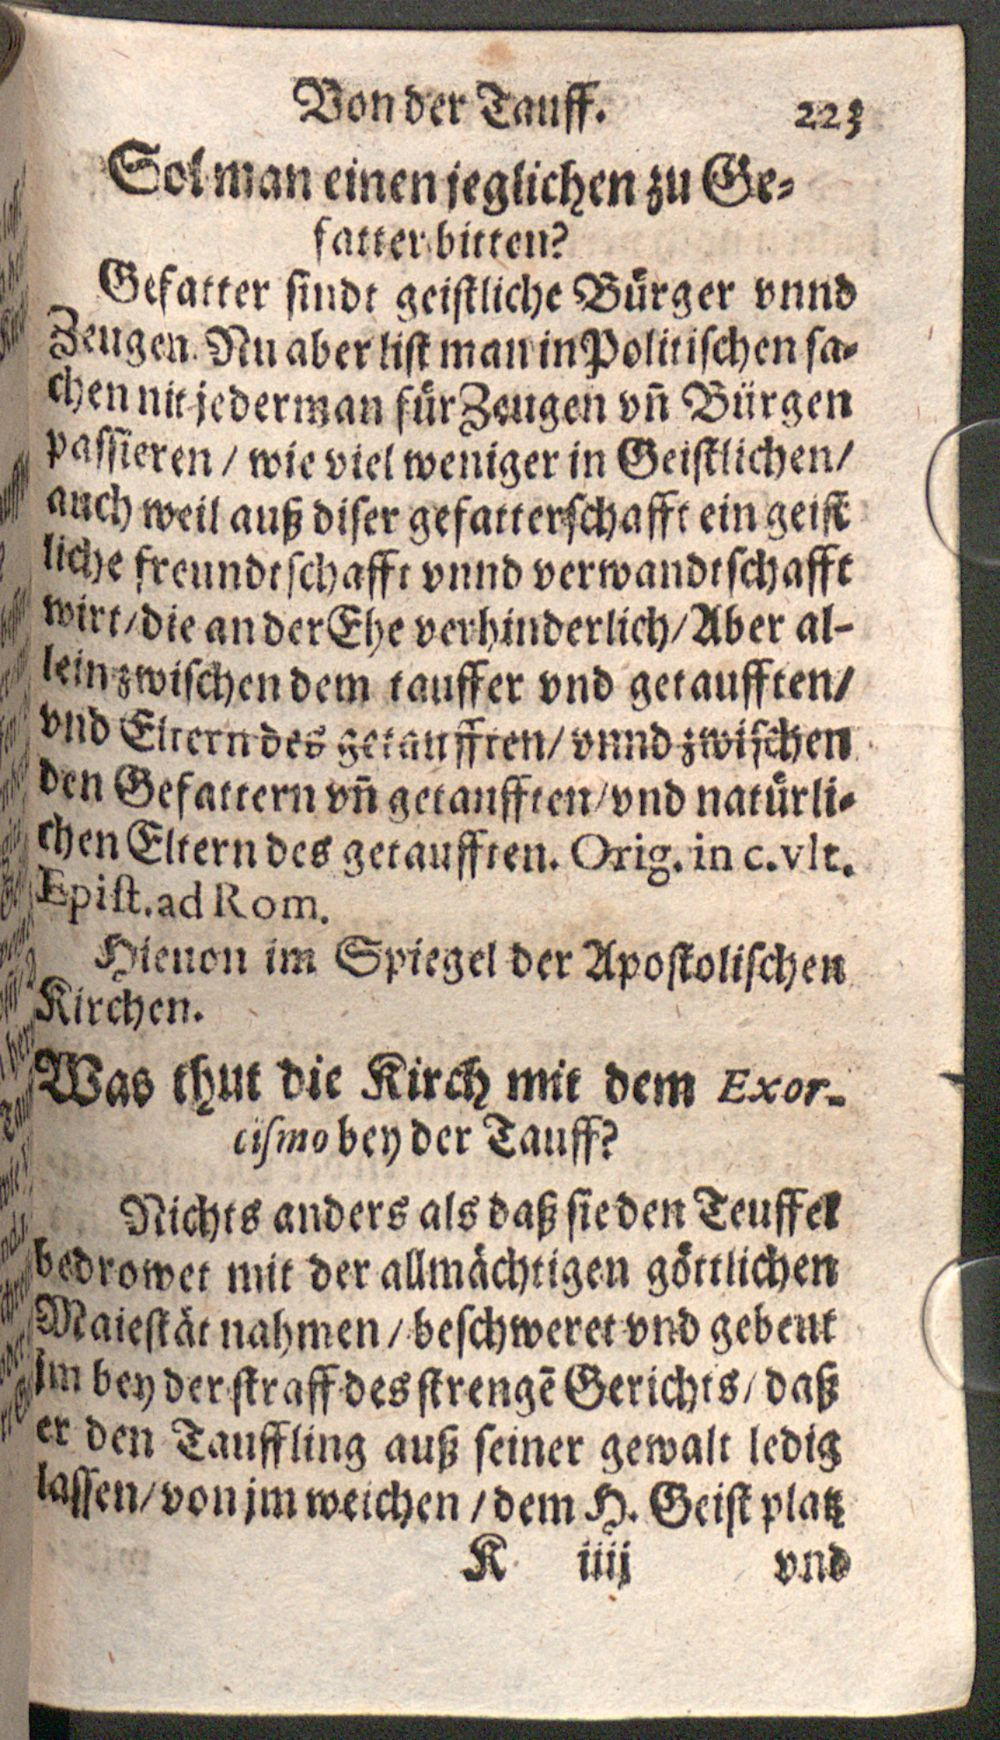 Von der Tauff. 223
Sol man einen jeglichen zu Ge-
fatter bitten?
Gefatter sindt geistliche Bürger vnnd
Zeugen. Nu aber list man in Politischen sa-
chen nit jederman für Zeugen vñ Bürgen
passieren / wie viel weniger in Geistlichen/
auch weil auß diser gefatterschafft ein geist
liche freundtschafft vnnd verwandtschafft
wirt/die an der Ehe verhinderlich/Aber al-
lein zwischen dem tauffer vnd getaufften/
vnd Eltern des getaufften/ vnnd zwischen
den Gefattern vñ getaufften/vnd natürli-
chen Eltern des getaufften. Orig. in c. vlt.
Epist. ad Rom.
Hieuon im Spiegel der Apostolischen
Kirchen.
Was thut die Kirch mit dem Exor-
cismo bey der Tauff?
Nichts anders als daß sie den Teuffel
bedrowet mit der allmächtigen göttlichen
Maiestät nahmen / beschweret vnd gebeut
jm bey der straff des strengẽ Gerichts/ daß
er den Tauffling auß seiner gewalt ledig
lassen/von jm weichen / dem H. Geist platz
K iiij vnd